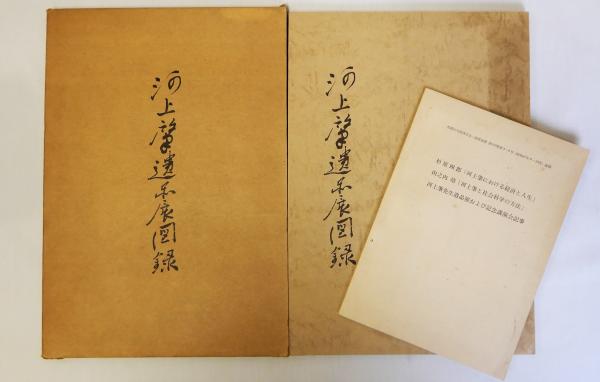 河上肇遺品展図録
河上肇遺品展図録
杉原四郎「河上肇における経済と人生」
山之内靖「河上肇と社会科学の方法」
河上肇先生遺品展および記念講演会記事